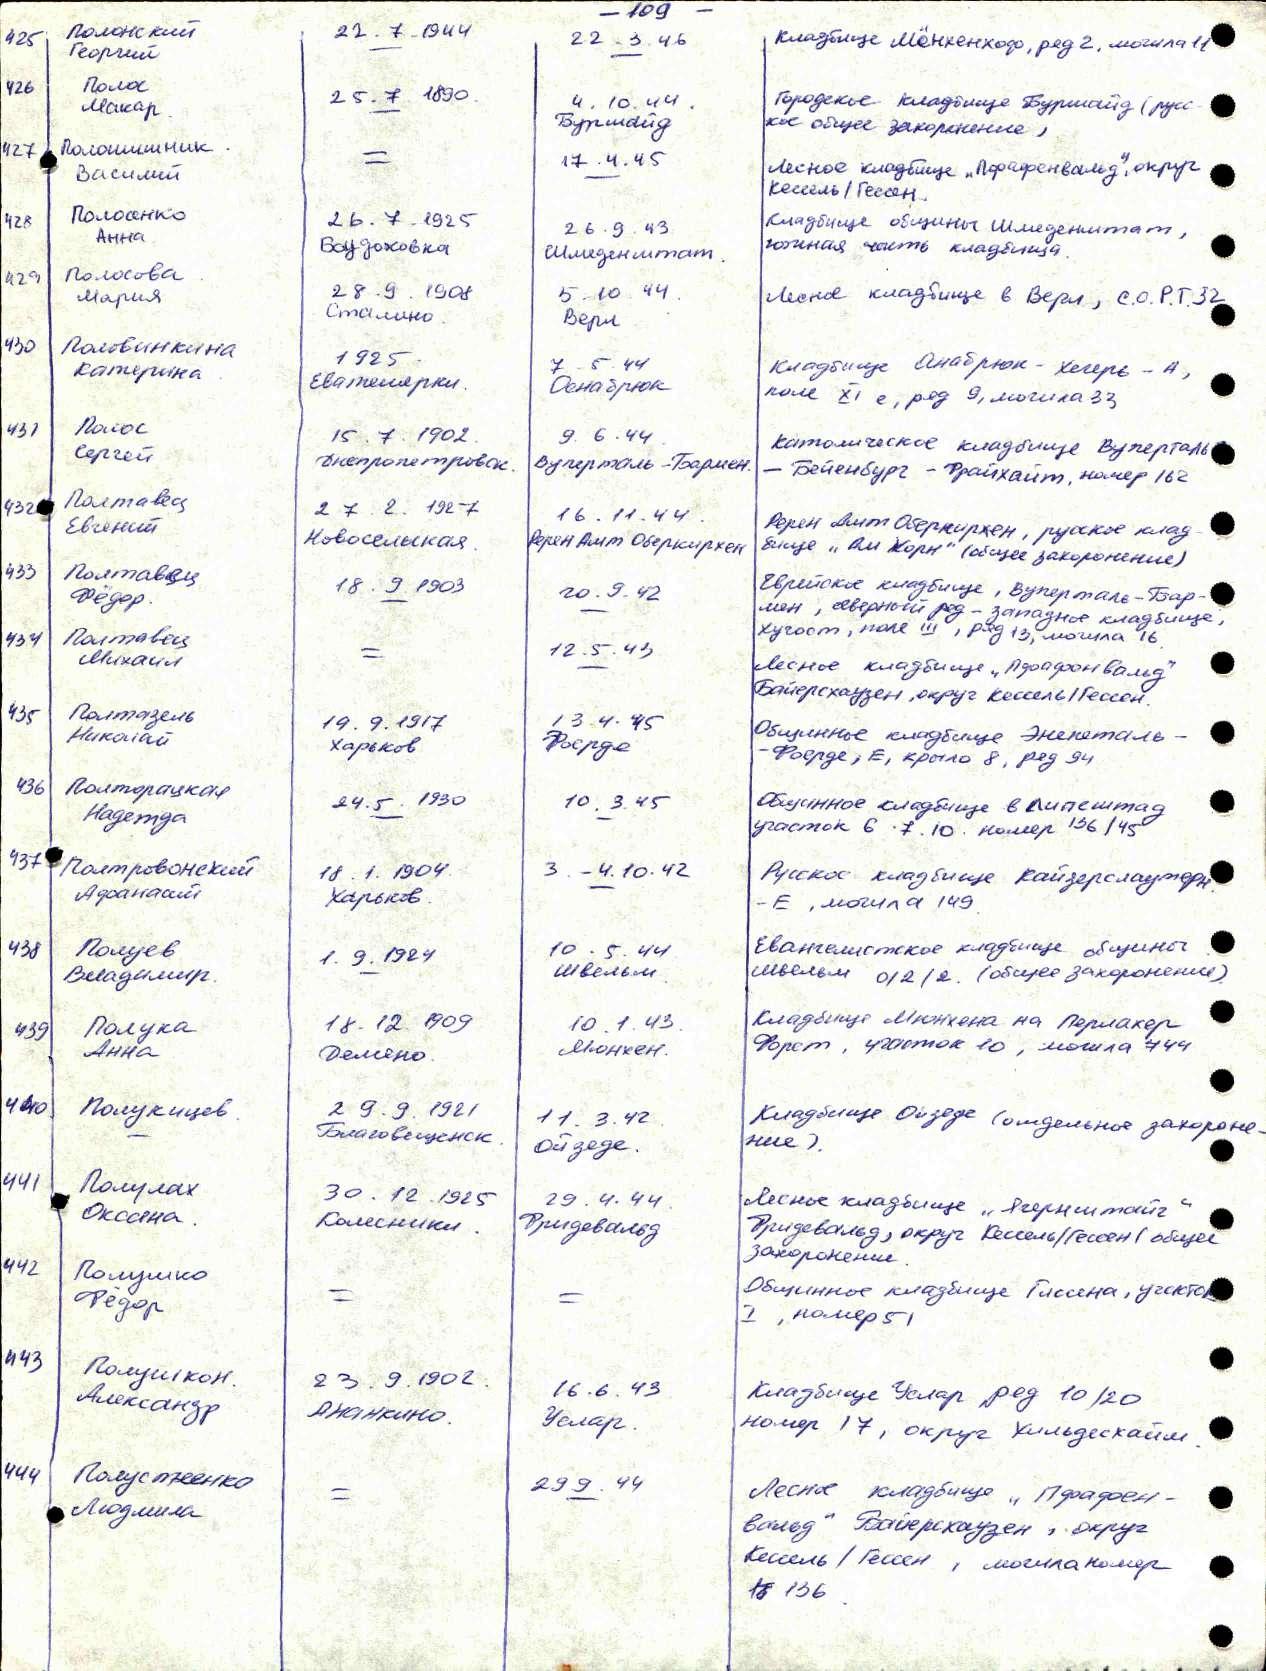 - 109 -
425 Полонский 22.7.1944 22.3.46 Кладбище Мёнхенхоф, ряд 2, могила 11
Георгий
426 Полос 25.7 1890. 4.10.44. Городское кладбище Буршайд (русс-
Макар. Буршайд кое общее захоронение,
427 Полошишник. = 17.4.45 Лесное кладбище „Пфафенвальд", округ
Василий Кессель/Гессен.
428 Полосенко 26.7.1925 26.9.43 Кладбище общины Шледенштат,
Анна Шледенштат. южная часть кладбища.
429 Полосова 28.9.1908 5.10.44. Лесное кладбище в Верл, С.О.Р.Т.32
Мария Сталино. Верл
430 Половинкина 1925. 7.5.44 Кладбище Хегерь - А,
Катерина Оснабрюк поле XI с, ряд 9, могила 33
431 Полос 15.7.1902. 9.6.44. Католическое кладбище Вуперталь
Сергей Днепропетровск. Вуперталь-Бармен. - Бейенбург - Фрайхайт, номер 162
432 Полтавец 27.2.1927 16.11.44. Ререн Амт Оберкирхен, русское клад-
Евгений Новоселыкая. Ререн Амт Оберкирхен бище „Ам Корн" (общее захоронение)
433 Полтавец 18.9 1903 20.9.42 Еврейское кладбище, Вуперталь-Бар-
Фёдор. мен, северный ряд - западное кладбище,
поле III, ряд 13, могила 16
434 Полтавец = 12.5.43 Лесное кладбище „Пфафенвальд"
Михаил Байерсхаузен, округ Кессель/Гессен.
435 Полтазель 19.9.1917 13.4.45 Общинное кладбище Энепеталь -
Николай Харьков Фоерде - Фоерде, Е, крыло 8, ряд 94
436 Полторацкая 24.5.1930 10.3.45 Общинное кладбище в Липсштад
Надежда участок 6.7.10. номер 136/45
437 Полтровонский 18.1.1904. 3.-4.10.42 Русское кладбище Кайзерслаутерн
Афанасий Харьков. - Е, могила 149
438 Полуев 1.9.1924 10.5.44 Евангелистское кладбище общины
Владимир. Швельм. Швельм 0/2/2. (общее захоронение)
439 Полука 18.12.1909 10.1.43. Кладбище Мюнхена на Перлакер
Анна Демено. Мюнхен. Форст, участок 10, могила 744
440 Полукицев. 29.9.1921 11.3.42. Кладбище Ойзеде (отдельное захороне-
— Благовещенск. Ойзеде. ние).
441 Полулах 30.12.1925 29.4.44. Лесное кладбище „Ягерштайг"
Оксана. Колесники. Фридевальд Фридевальд, округ Кессель/Гессен/ общее
захоронение.
442 Полушко = = Общинное кладбище Глссена, участок
Фёдор I, номер 51
443 Полушкон. 23.9.1902. 16.6.43 Кладбище Услар ряд 10/20
Александр Ананкино. Услар. номер 17, округ Хильдесхайм.
444 Полустненко = 29 9.44 Лесное кладбище „Пфафен-
Людмила вальд" Байерсхаузен, округ
Кессель/Гессен, могила номер
136